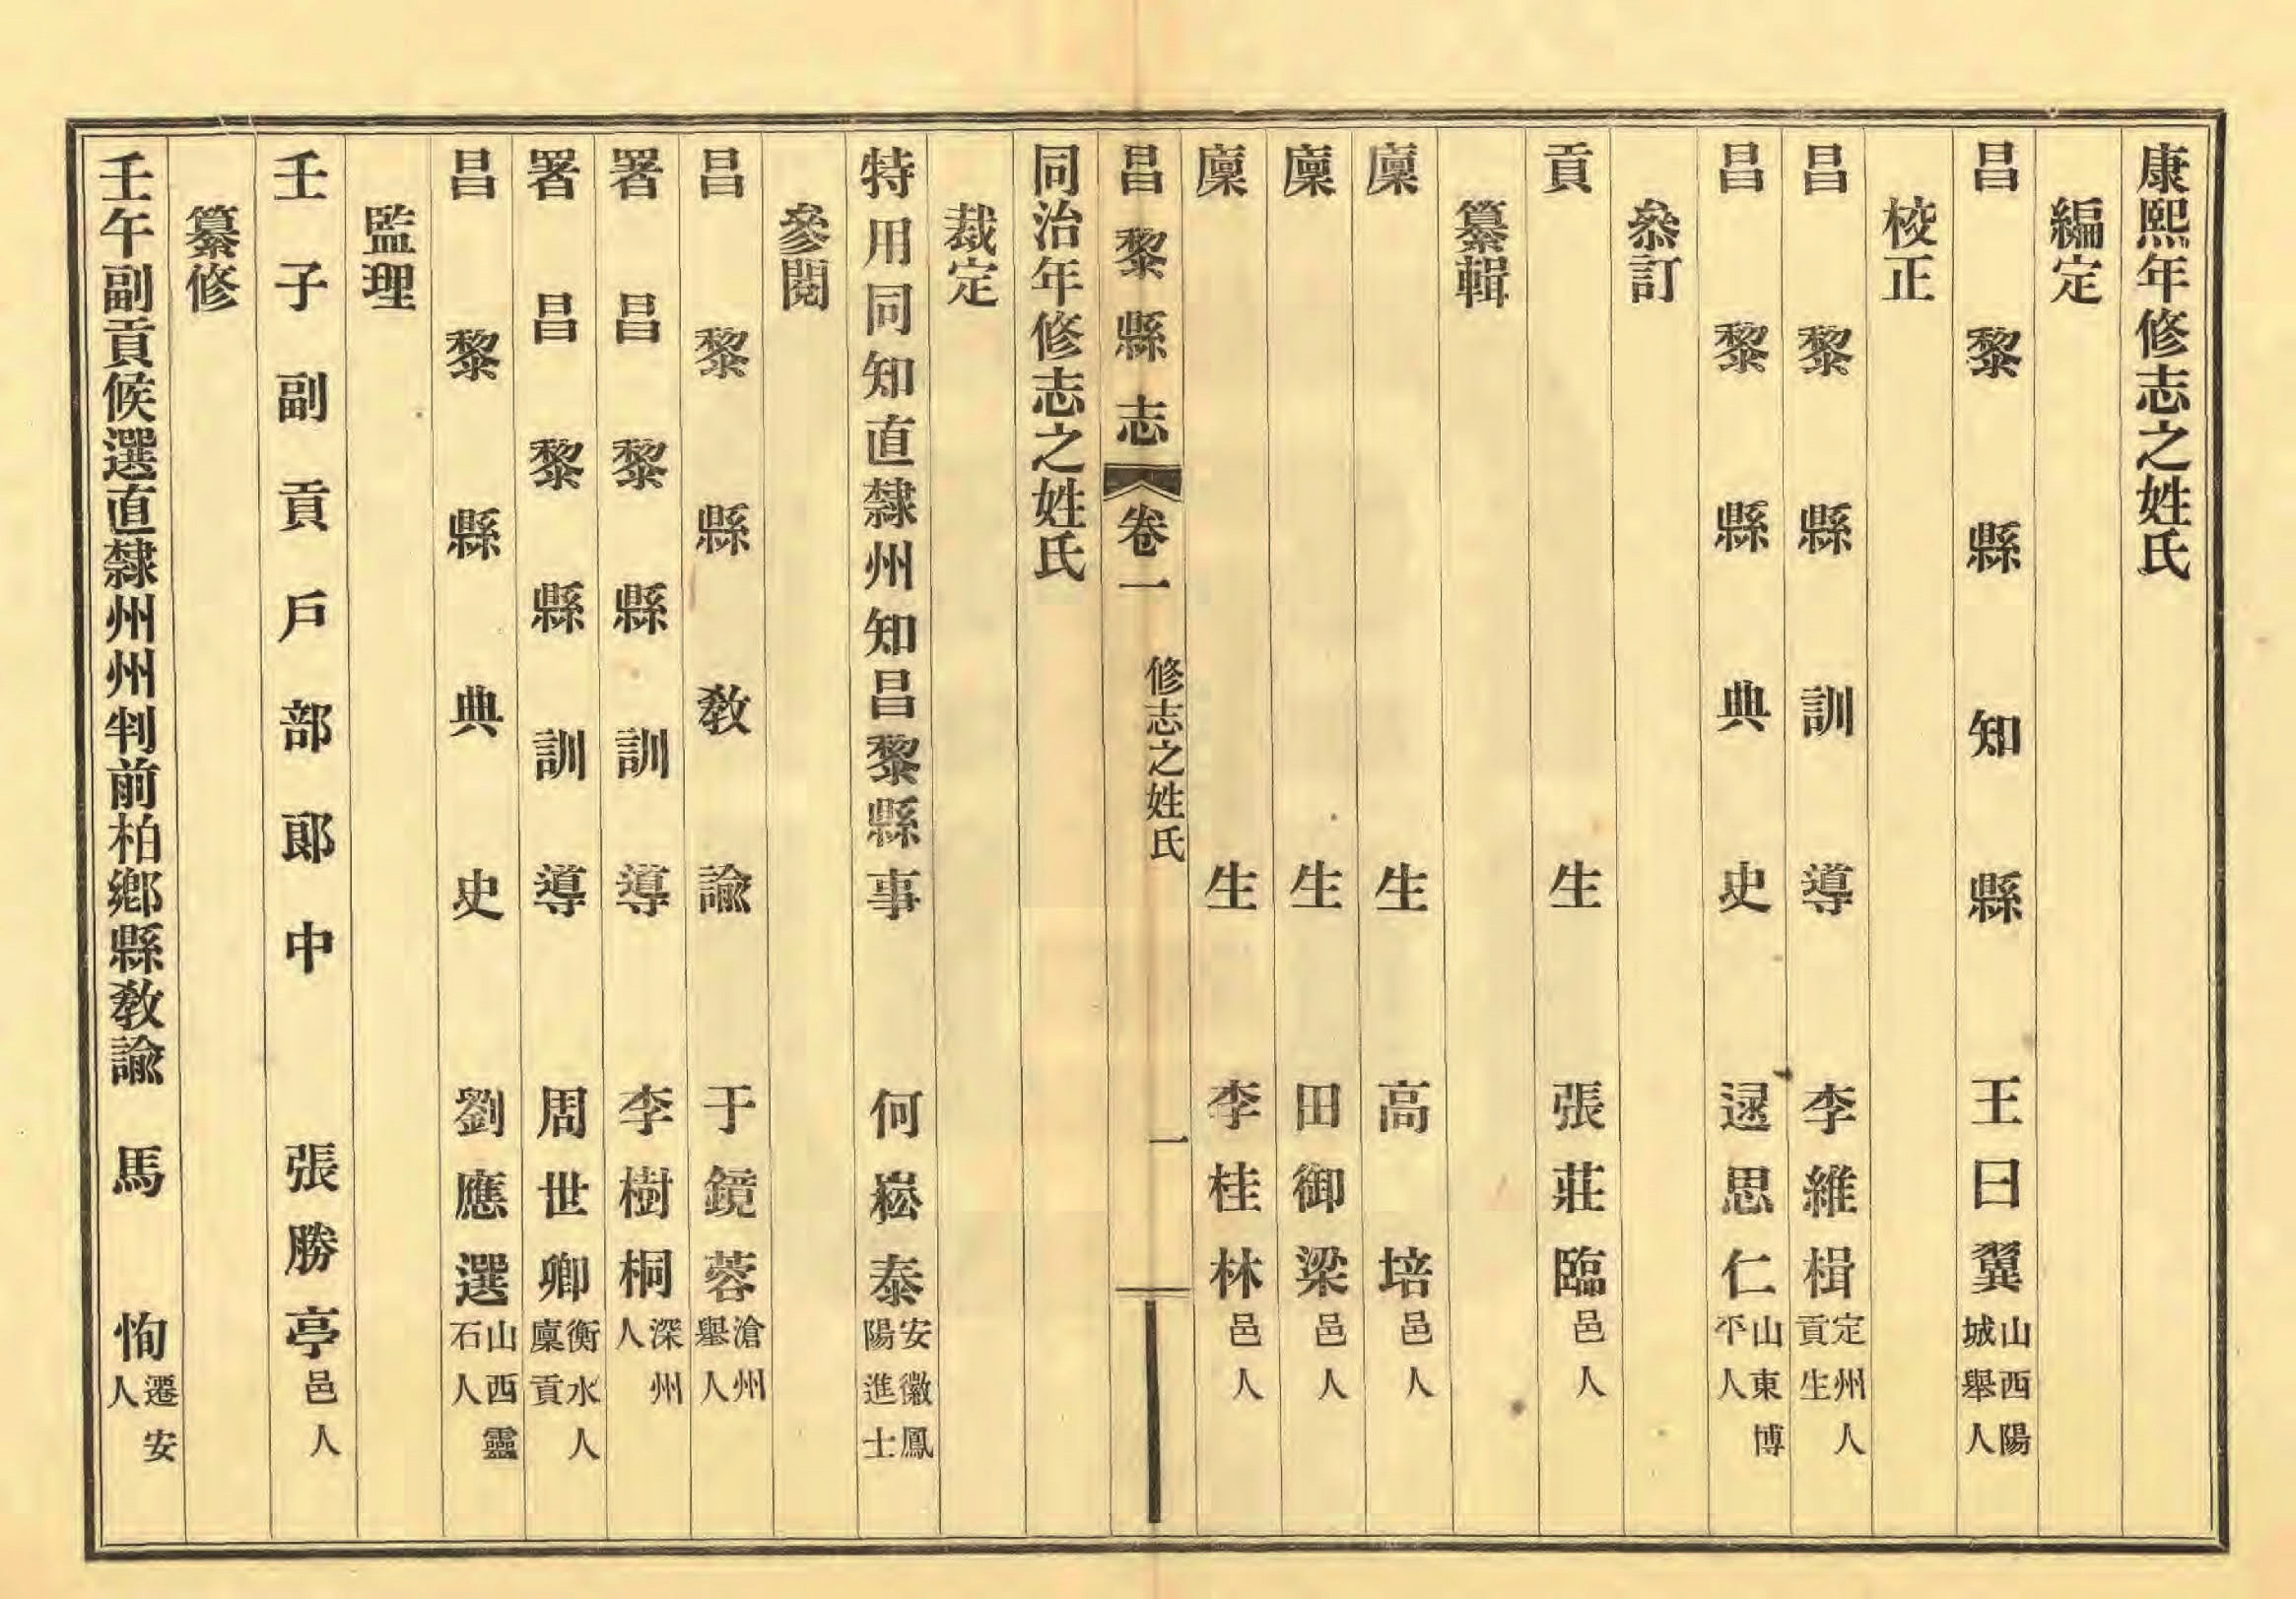 康熙年修志之姓氏
編定
昌黎縣知縣 王曰翼 山西陽城舉人
校正
昌黎縣訓導 李維楫 定州人貢生
昌黎縣典史 逯思仁 山東博平人
叅訂
貢生 張莊臨 邑人
纂輯
廩生 高培 邑人
廩生 田御梁 邑人
廩生 李桂林 邑人
昌黎縣志 卷一 修志之姓氏 一
同治年修志之姓氏
裁定
特用同知直隸州知昌黎縣事 何崧泰 安徽鳳陽進士
參閱
昌黎縣教諭 于鏡蓉 滄州舉人
署昌黎縣訓導 李樹桐 深州人
署昌黎縣訓導 周世卿 衡水人廩貢
昌黎縣典史 劉應選 山西靈石人
監理
壬子副貢戶部郎中 張勝亭 邑人
纂修
壬午副貢候選直隸州州判前柏鄉縣教諭 馬恂 遷安人